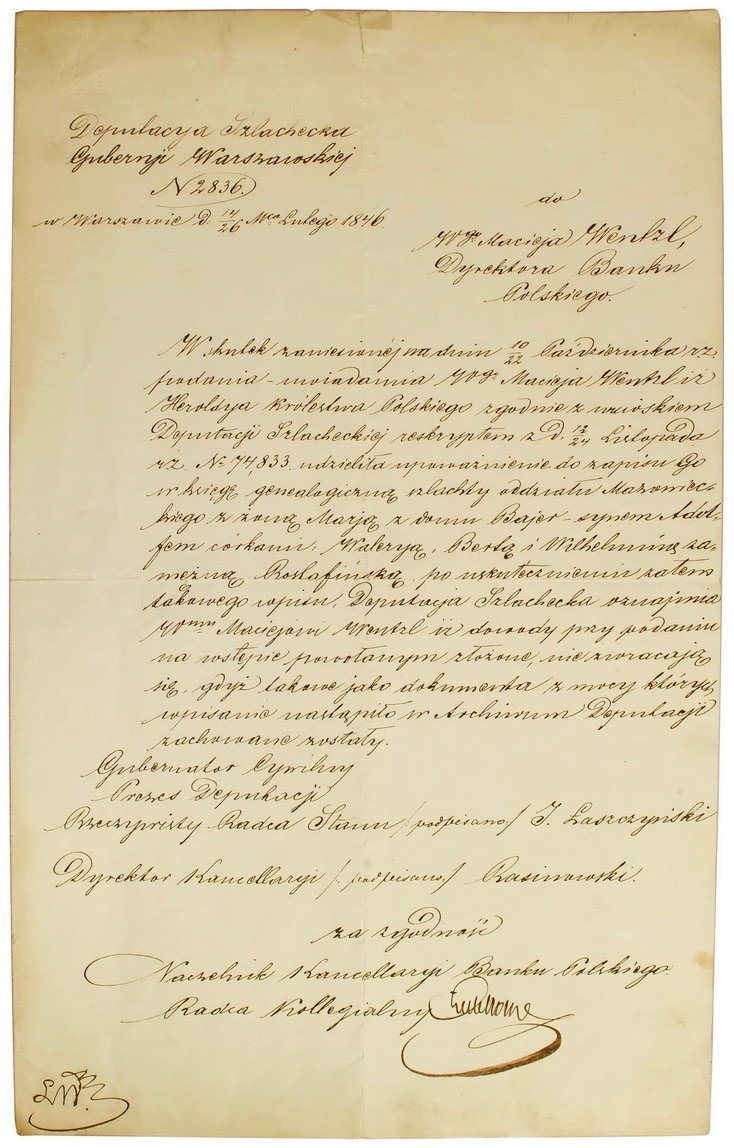 Deputacya Szlachecka
Gubernji Warszawskiej
N 2836.
w Warszawie d. 14/26 Mca Lutego 1846.
do
Wgo Macieja Wentzl,
Dyrektora Banku
Polskiego.
Wskutek zaniesionéj na dniu 10/22 Października rz.
podania - uwiadamia Wgo Macieja Wentzl iż
Heroldya Królestwa Polskiego zgodnie z wnioskiem
Deputacji Szlacheckiéj reskryptem z d. 12/24 Listopada
rz. No 74,833 udzieliła upoważnienie do zapisu Go
w księgę genealogiczną szlachty oddziału Mazowiec-
kiego z żoną Marją z domu Bajer - synem Adol-
fem córkami: Waleryą, Bertą i Wilhelminą za-
mężną Rostafińską, po uskutecznieniu zatem
takowego wpisu, Deputacja Szlachecka oznajmia
Wmu Maciejowi Wentzl iż dowody przy podaniu
na wstępie powołanym złożone, nie zwracają
się, gdyż takowe jako dokumenta z mocy których
wpisanie nastąpiło w Archiwum Deputacji
zachowane zostały.
Gubernator Cywilny
Prezes Deputacji
Rzeczywisty Radca Stanu /podpisano/ J. Łaszczyński
Dyrektor Kancellaryi /podpisano/ Rasinowski.
za zgodność
Naczelnik Kancellaryi Banku Polskiego.
Radca Kollegialny